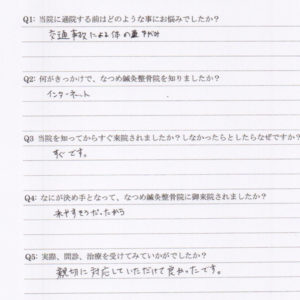 Q1: 当院に通院する前はどのような事にお悩みでしたか？
交通事故による体の重さ痛み
Q2: 何がきっかけで、なつめ鍼灸整骨院を知りましたか？
インターネット
Q3 当院を知ってからすぐ来院されましたか？しなかったらとしたらなぜですか？
すぐです。
Q4: なにが決め手となって、なつめ鍼灸整骨院に御来院されましたか？
来やすそうだったから
Q5: 実際、問診、治療を受けてみていかがでしたか？
親切に対応していただけて良かったです。